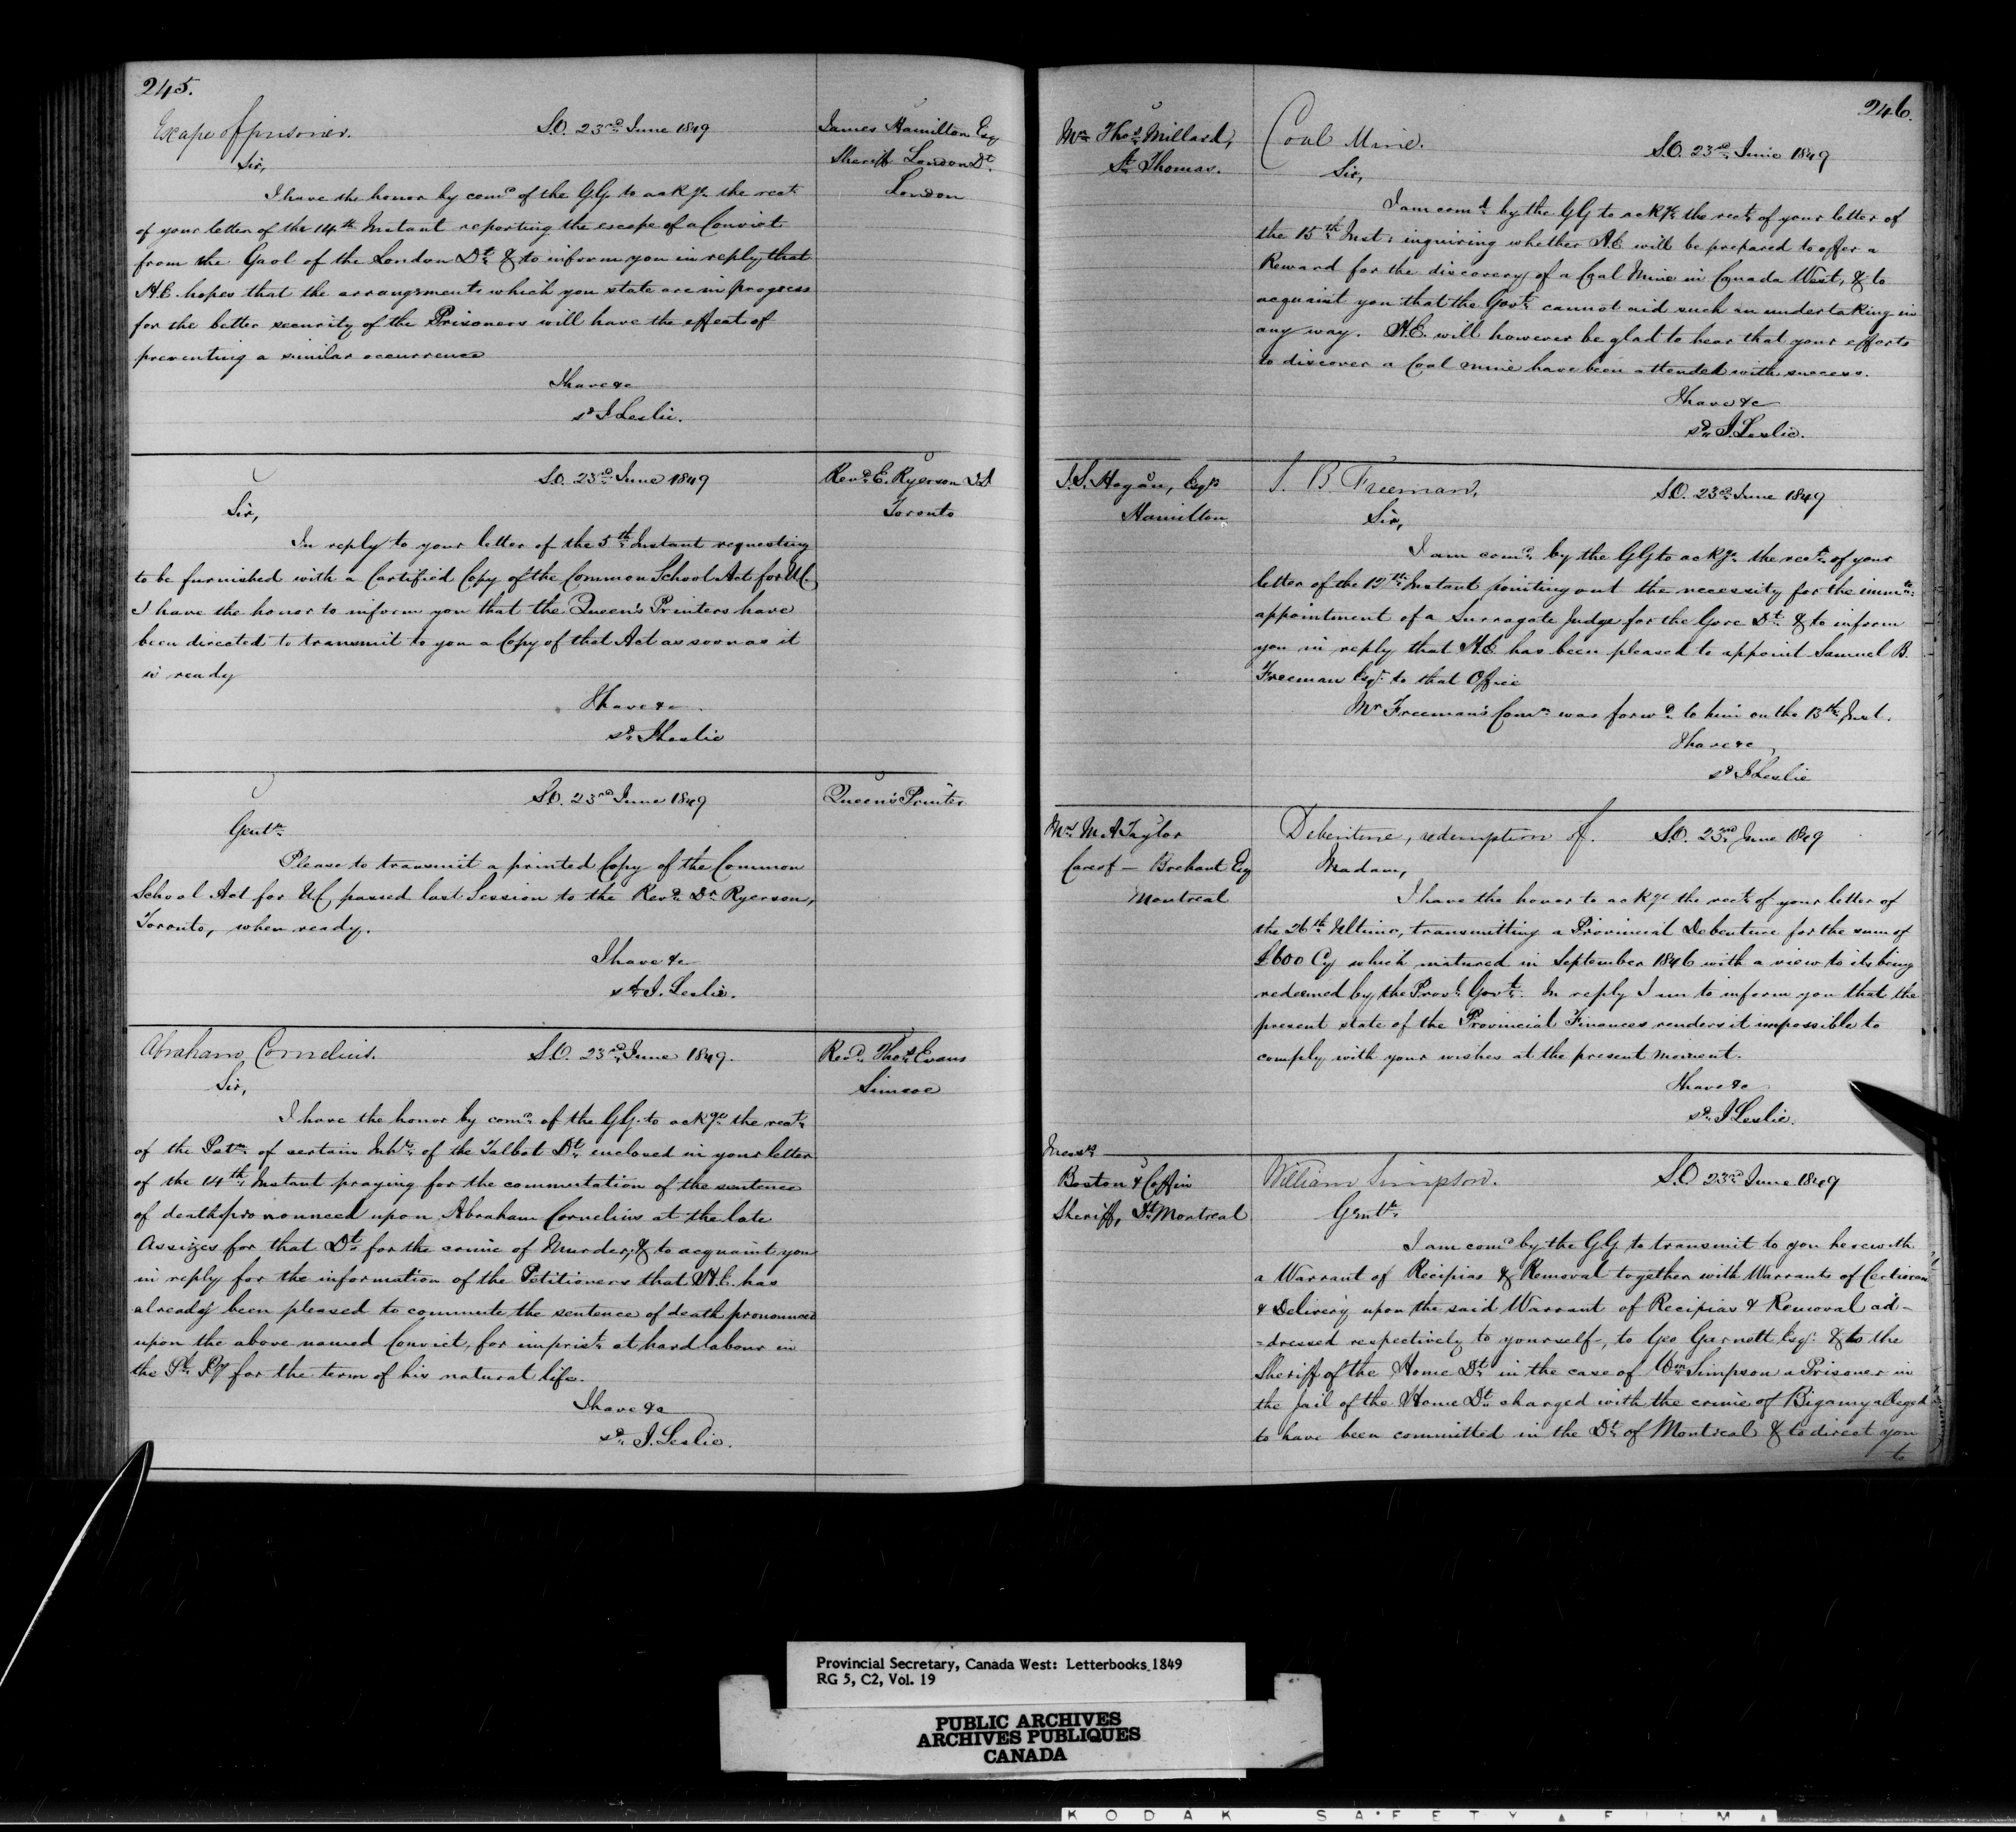 245.
Escape of prisoner.
S.O. 23rd June 1849
James Hamilton Esq
Sheriff London Dt.
London
Sir,
I have the honor by comd of the GG to ackge the rect
of your letter of the 14th Instant reporting the escape of a Convict
from the Gaol of the London Dt. & to inform you in reply that
H.E. hopes that the arrangements which you state are in progress
for the better security of the Prisoners will have the effect of
preventing a similar occurrence
I have &c
sd J Leslie.
S.O. 23rd June 1849
Revd. E. Ryerson D.D
Toronto
Sir,
In reply to your letter of the 5th Instant requesting
to be furnished with a Certified Copy of the Common School Act for U.C.
I have the honor to inform you that the Queen's Printers have
been directed to transmit to you a Copy of that Act as soon as it
is ready
I have &c.
sd. J Leslie
S.O. 23rd June 1849
Queen's Printer
Gentn.
Please to transmit a printed Copy of the Common
School Act for UC, passed last Session to the Revd. Dr. Ryerson,
Toronto, when ready.
I have &c
sd. J. Leslie.
Abraham Cornelius.
S.O. 23rd June 1849.
Revd. Thos Evans
Simcoe
Sir,
I have the honor by comd. of the GG. to ackge. the rect.
of the Petn. of certain Inhts. of the Talbot Dt. enclosed in your letter
of the 14th Instant praying for the commutation of the sentence
of death pronounced upon Abraham Cornelius at the late
Assizes for that Dt. for the crime of Murder, & to acquaint you
in reply for the information of the Petitioners that H.E. has
already been pleased to commute the sentence of death pronounced
upon the above named Convict, for imprist. at hard labour in
the Pl. Py for the term of his natural life.
I have &c
sd. J. Leslie.
246.
Mr. Thos. Millard,
St. Thomas.
Coal Mine.
S.O. 23rd June 1849
Sir,
I am comd. by the GG to ackge. the rect. of your letter of
the 15th Inst: inquiring whether H.E. will be prepared to offer a
Reward for the discovery of a Coal Mine in Canada West, & to
acquaint you that the Govt. cannot aid such an undertaking in
any way. H.E. will however be glad to hear that your efforts
to discover a Coal mine have been attended with success.
I have &c
sd. J. Leslie.
J.S. Hogan, Esqr
Hamilton
S. B. Freeman,
S.O. 23rd June 1849
Sir,
I am comd. by the GG to ackge. the rect. of your
letter of the 12th Instant pointing out the necessity for the immte.
appointment of a Surrogate Judge for the Gore Dt. & to inform
you in reply that H.E. has been pleased to appoint Samuel B.
Freeman Esqr. to that Office
Mr Freeman's Comn. was forwd. to him on the 13th Inst.
I have &c,
sd J Leslie
Mrs M A Taylor
Care of — Brehaut Esq
Montreal
Debenture, redemption of.
S.O. 23rd June 1849
Madam,
I have the honor to ackge the rect. of your letter of
the 26th Ultimo, transmitting a Provincial Debenture for the sum of
£600 Cy which matured in September 1846 with a view to its being
redeemed by the Provl. Govt. In reply I am to inform you that the
present state of the Provincial Finances renders it impossible to
comply with your wishes at the present moment.
I have &c
sd. J Leslie.
Messrs
Boston & Coffin
Sheriff, Dt. Montreal
William Simpson.
S.O. 23rd June 1849
Gentn.
I am comd by the GG to transmit to you herewith
a Warrant of Recipias & Removal together with Warrants of Certiorari
& Delivery upon the said Warrant of Recipias & Removal ad-
=dressed respectively to yourself, to Geo Garnett Esqr. & to the
Sheriff of the Home Dt. in the case of Wm. Simpson a Prisoner in
the Jail of the Home Dt. charged with the crime of Bigamy alleged
to have been committed in the Dt. of Montreal & to direct you
to
Provincial Secretary, Canada West: Letterbooks 1849
RG 5, C2, Vol. 19
PUBLIC ARCHIVES
ARCHIVES PUBLIQUES
CANADA
KODAK SAFETY FILM